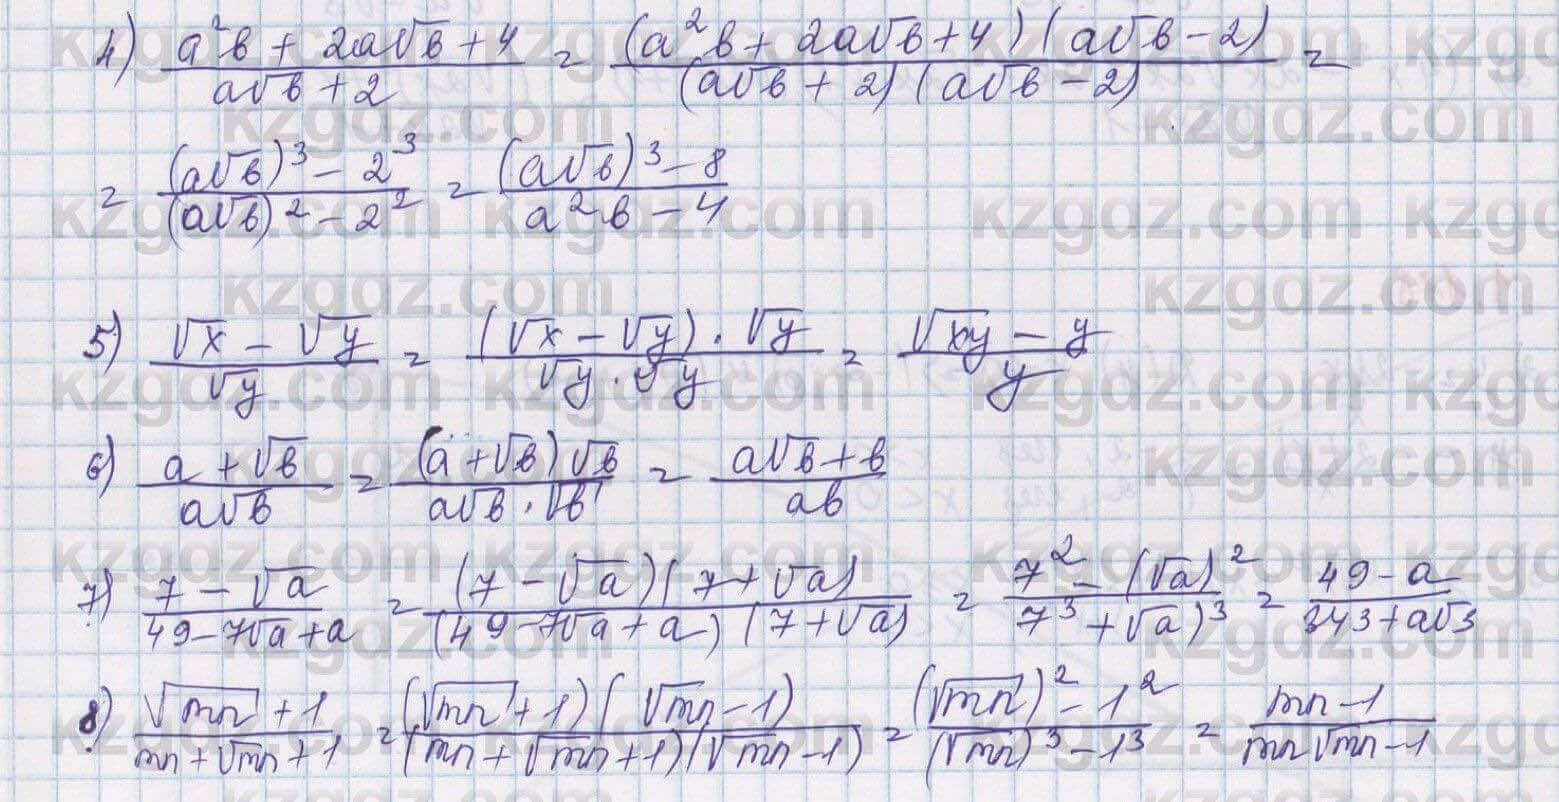 4) (a²b + 2a√b + 4)/(a√b + 2) = ((a²b + 2a√b + 4)(a√b - 2))/((a√b + 2)(a√b - 2)) =
= ((a√b)³ - 2³)/((a√b)² - 2²) = ((a√b)³ - 8)/(a²b - 4)
5) (√x - √y)/√y = ((√x - √y) · √y)/(√y · √y) = (√xy - y)/y
6) (a + √b)/(a√b) = ((a + √b)√b)/(a√b · √b) = (a√b + b)/(ab)
7) (7 - √a)/(49 - 7√a + a) = ((7 - √a)(7 + √a))/((49 - 7√a + a)(7 + √a)) = (7² - (√a)²)/(7³ + √a)³ = (49 - a)/(343 + a√3)
8) (√mn + 1)/(mn + √mn + 1) = ((√mn + 1)(√mn - 1))/((mn + √mn + 1)(√mn - 1)) = ((√mn)² - 1²)/((√mn)³ - 1³) = (mn - 1)/(mn√mn - 1)
kzgdz.com